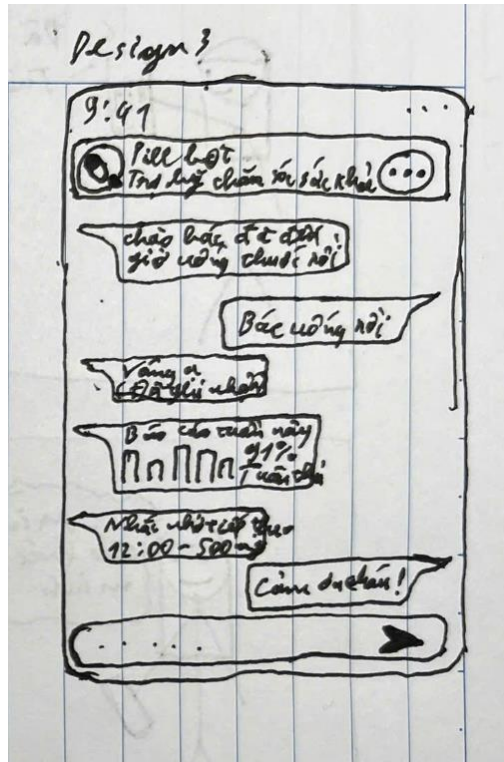 Design 3
9:41
...
Pill bot
Trợ lý chăm sóc sức khỏe
...
Chào bác, đã đến
giờ uống thuốc rồi
Bác uống rồi
Vâng ạ
Đã ghi nhận
Báo cáo tuần này
91%
Tuân thủ
Nhắc nhở tiếp theo
12:00 - 500mg
Cảm ơn cháu!
.. ...